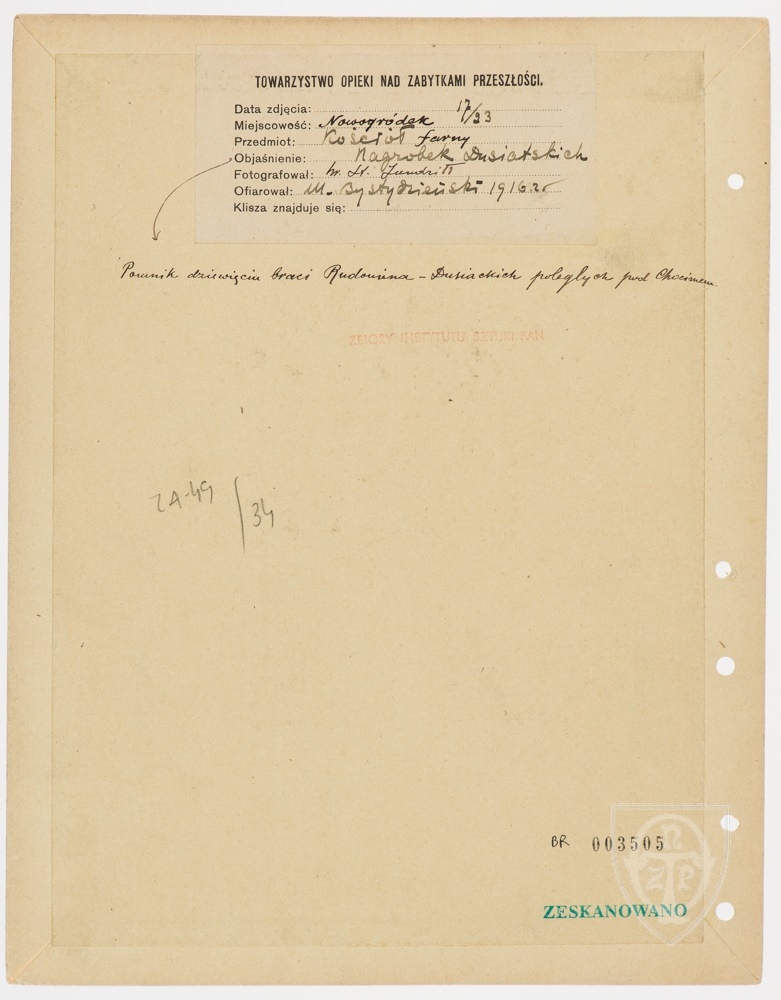 TOWARZYSTWO OPIEKI NAD ZABYTKAMI PRZESZŁOŚCI.
Data zdjęcia: 17/33
Miejscowość: Nowogródek
Przedmiot: Kościół farny
Objaśnienie: Nagrobek Dusiatskich
Fotografował: hr. St. Żundriłł
Ofiarował: M. Bystydzieński 1916 r.
Klisza znajduje się:
Pomnik dziewięciu braci Rudomina - Dusiackich poległych pod Chocimem.
ZBIORY INSTYTUTU SZTUKI PAN
ZA-49/34
BR 003505
ZESKANOWANO